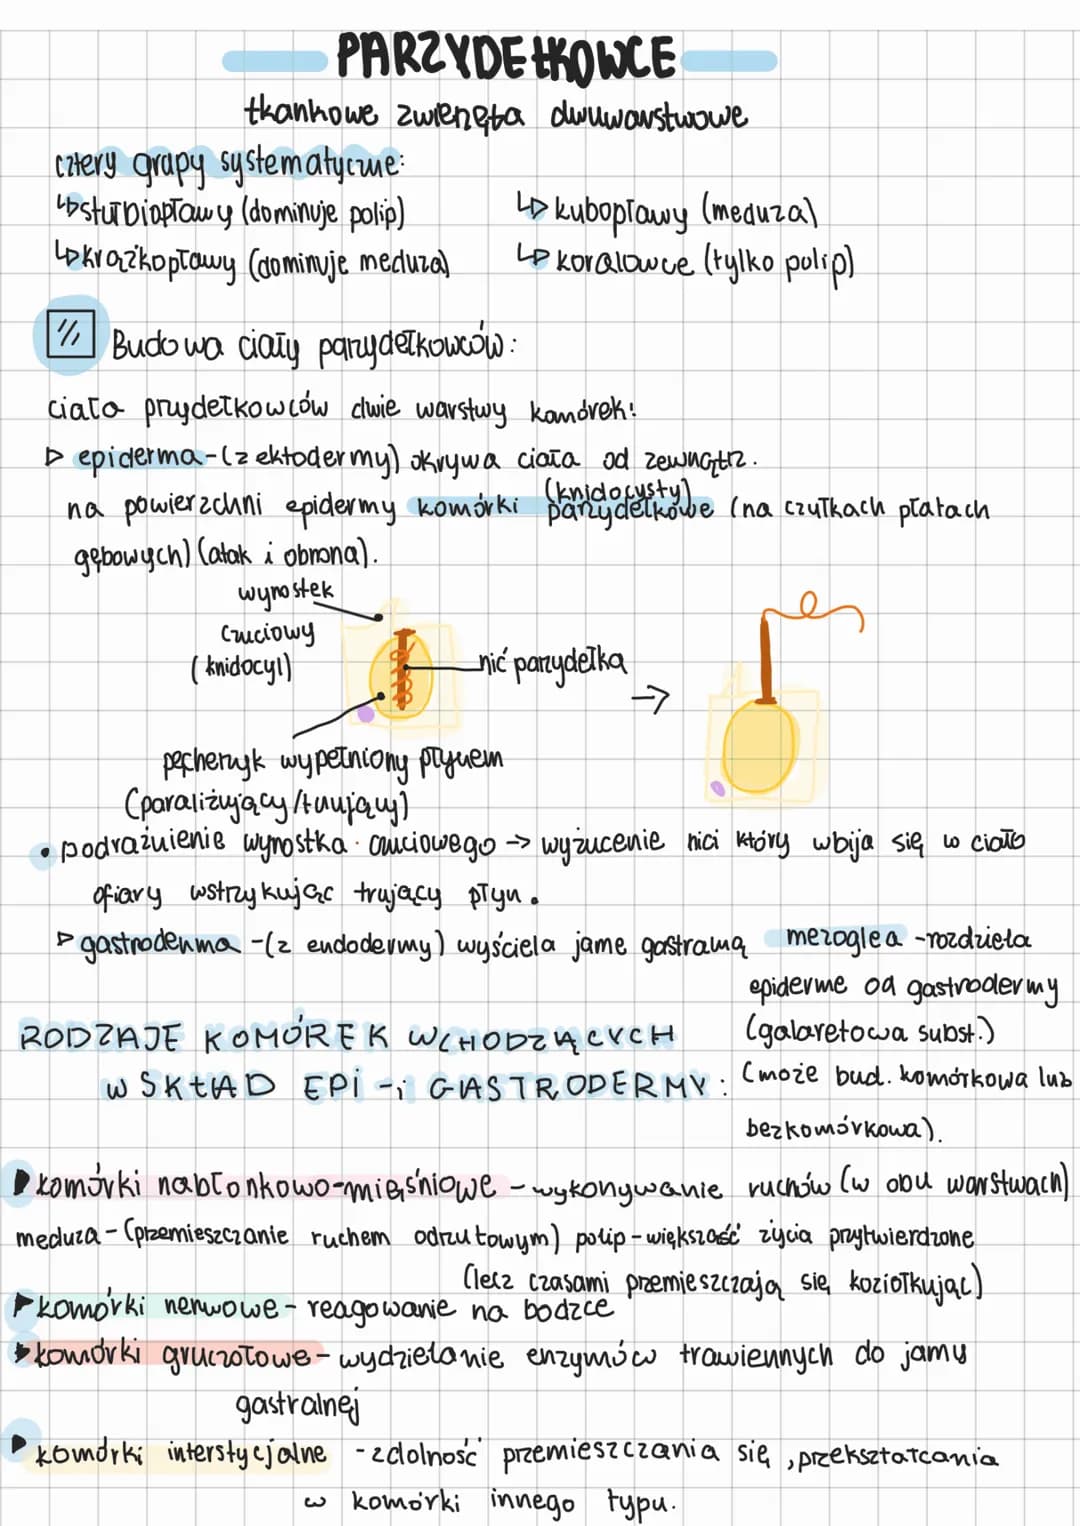 PARZYDEŁKOWCE
tkankowe zwierzęta dwuwarstwowe
cztery grupy systematyczne:
↳stułbiopławy (dominuje polip)
↳kubopławy (meduza)
↳krążkopławy (dominuje meduza)
↳koralowce (tylko polip)
Budowa ciały parzydełkowców:
ciało przydełkowców dwie warstwy komórek:
▷ epiderma-(z ektodermy) okrywa ciała od zewnątrz.
na powierzchni epidermy komórki (knidocysty) parzydełkowe (na czułkach płatach
gębowych) (atak i obrona).
wyrostek
czuciowy
(knidocyl)
nić parzydełka
→
pęcherzyk wypełniony płynem
(paraliżujący/trujący)
• podrażnienie wyrostka czuciowego -> wyżucenie nici który wbija się w ciało
ofiary wstrzykując trujący płyn.
▷ gastroderma -(z endodermy) wyściela jame gastralną
mezoglea -rozdziela
epiderme od gastrodermy
(galaretowa subst.)
(może bud. komórkowa lub
bezkomórkowa).
RODZAJE KOMÓREK WCHODZĄCYCH
W SKŁAD EPI -i GASTRODERMY:
▶komórki nabłonkowo-mięśniowe - wykonywanie ruchów (w obu warstwach)
meduza - (przemieszczanie ruchem odrzutowym) polip - większość życia przytwierdzone
(lecz czasami przemieszczają się koziołkując)
▶komórki nerwowe - reagowanie na bodzce
▶komórki gruczołowe - wydzielanie enzymów trawiennych do jamy
gastralnej
▶ komórki interstycjalne - zdolność przemieszczania się, przekształcania
w komórki innego typu.